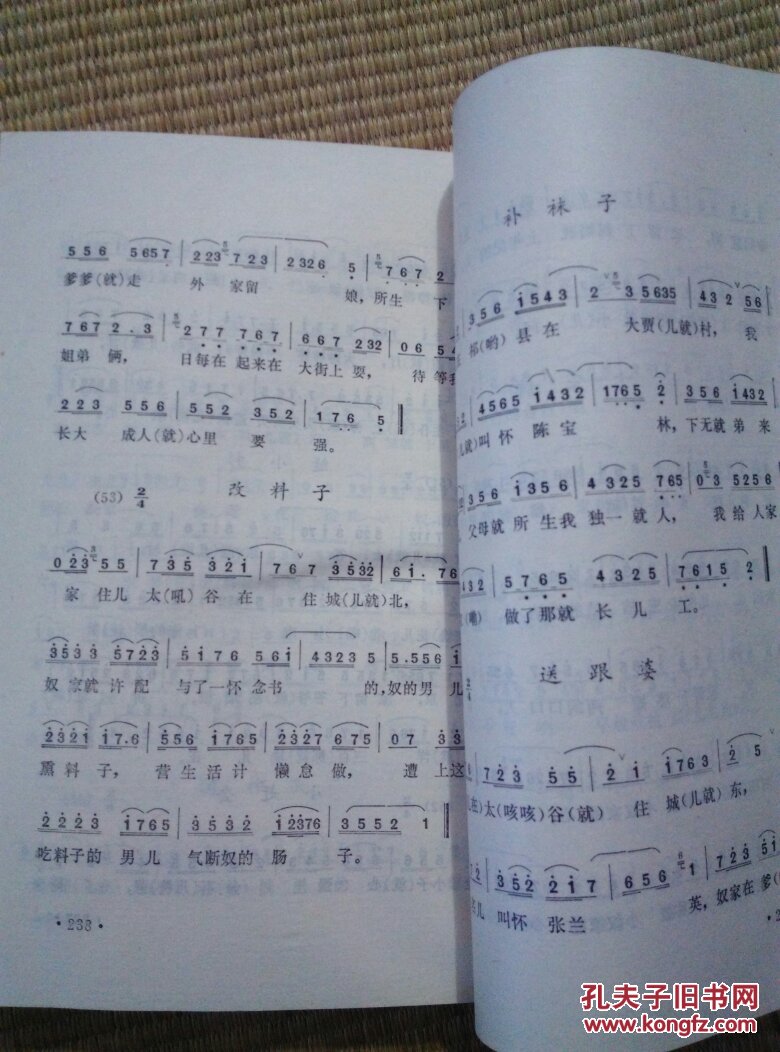 5 5 6 5 6 5 7 2 2 3 7 2 3 2 3 2 6 5 7 6 7 2
爹爹(就)走 外 家留 娘,所生 下
7 6 7 2 . 3 2 7 7 7 6 7 6 6 7 2 3 2 0 6 5 4
姐弟 俩, 日每在 起来在 大街上 耍, 待 等我
2 2 3 5 5 6 5 5 2 3 5 2 1 7 6 5
长大 成人(就)心里 要 强。
(53) 2/4 改 料 子
0 2 3 5 5 7 3 5 3 2 1 7 6 7 3 5 3 2 6 1 . 7 6
家 住儿 太(吼)谷 在 住 城(儿就)北,
3 5 3 3 5 7 2 3 5 1 7 6 5 6 1 4 3 2 3 5 5 . 5 5 6
奴 家就 许 配 与了一怀 念书 的,奴的 男 儿
2 3 2 1 1 7 . 6 5 5 6 1 7 6 5 2 3 2 7 6 7 5 0 7 3 3
熏料 子, 营生活 计 懒怠 做, 遭 上这
2 2 2 3 1 7 6 5 3 5 3 2 1 2 3 7 6 3 5 5 2 1
吃料子的 男 儿 气断奴的 肠 子。
·238·
补 袜 子
3 5 6 1 5 4 3 2 3 5 6 3 5 4 3 2 5 6
祁(哟) 县 在 大贾(儿就)村, 我
4 5 6 5 1 4 3 2 1 7 6 5 2 3 5 6 1 4 3 2
儿就)叫 怀 陈 宝 林,下无就 弟 来
3 5 6 1 3 5 6 4 3 2 5 7 6 5 0 3 5 2 5 6
父母就 所 生 我 独一 就 人, 我 给 人家
4 3 2 5 7 6 5 4 3 2 5 7 6 1 5 2
做了那就 长 儿 工。
2/4 送 跟 婆
7 2 3 5 5 2 1 1 7 6 3 2 5
在)太(咳咳)谷(就) 住 城(儿就)东,
3 5 2 2 1 7 6 5 6 1 7 2 3 5 1
儿 叫怀 张兰 英,奴家在
孔夫子旧书网
www.kongfz.com